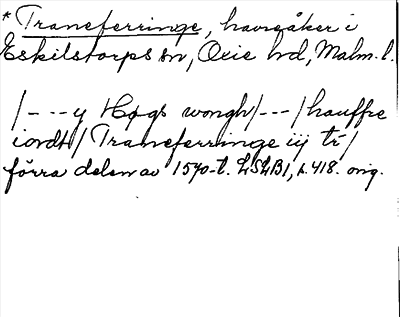 * Traneferringe, havreåker i
Eskilstorps sn, Oxie hd, Malm. l.
/---y Høgs wongh/---/hauffre
iordt/ Traneferringe iij tr/
förra delen av 1570-t. LSLB1, s. 418. orig.